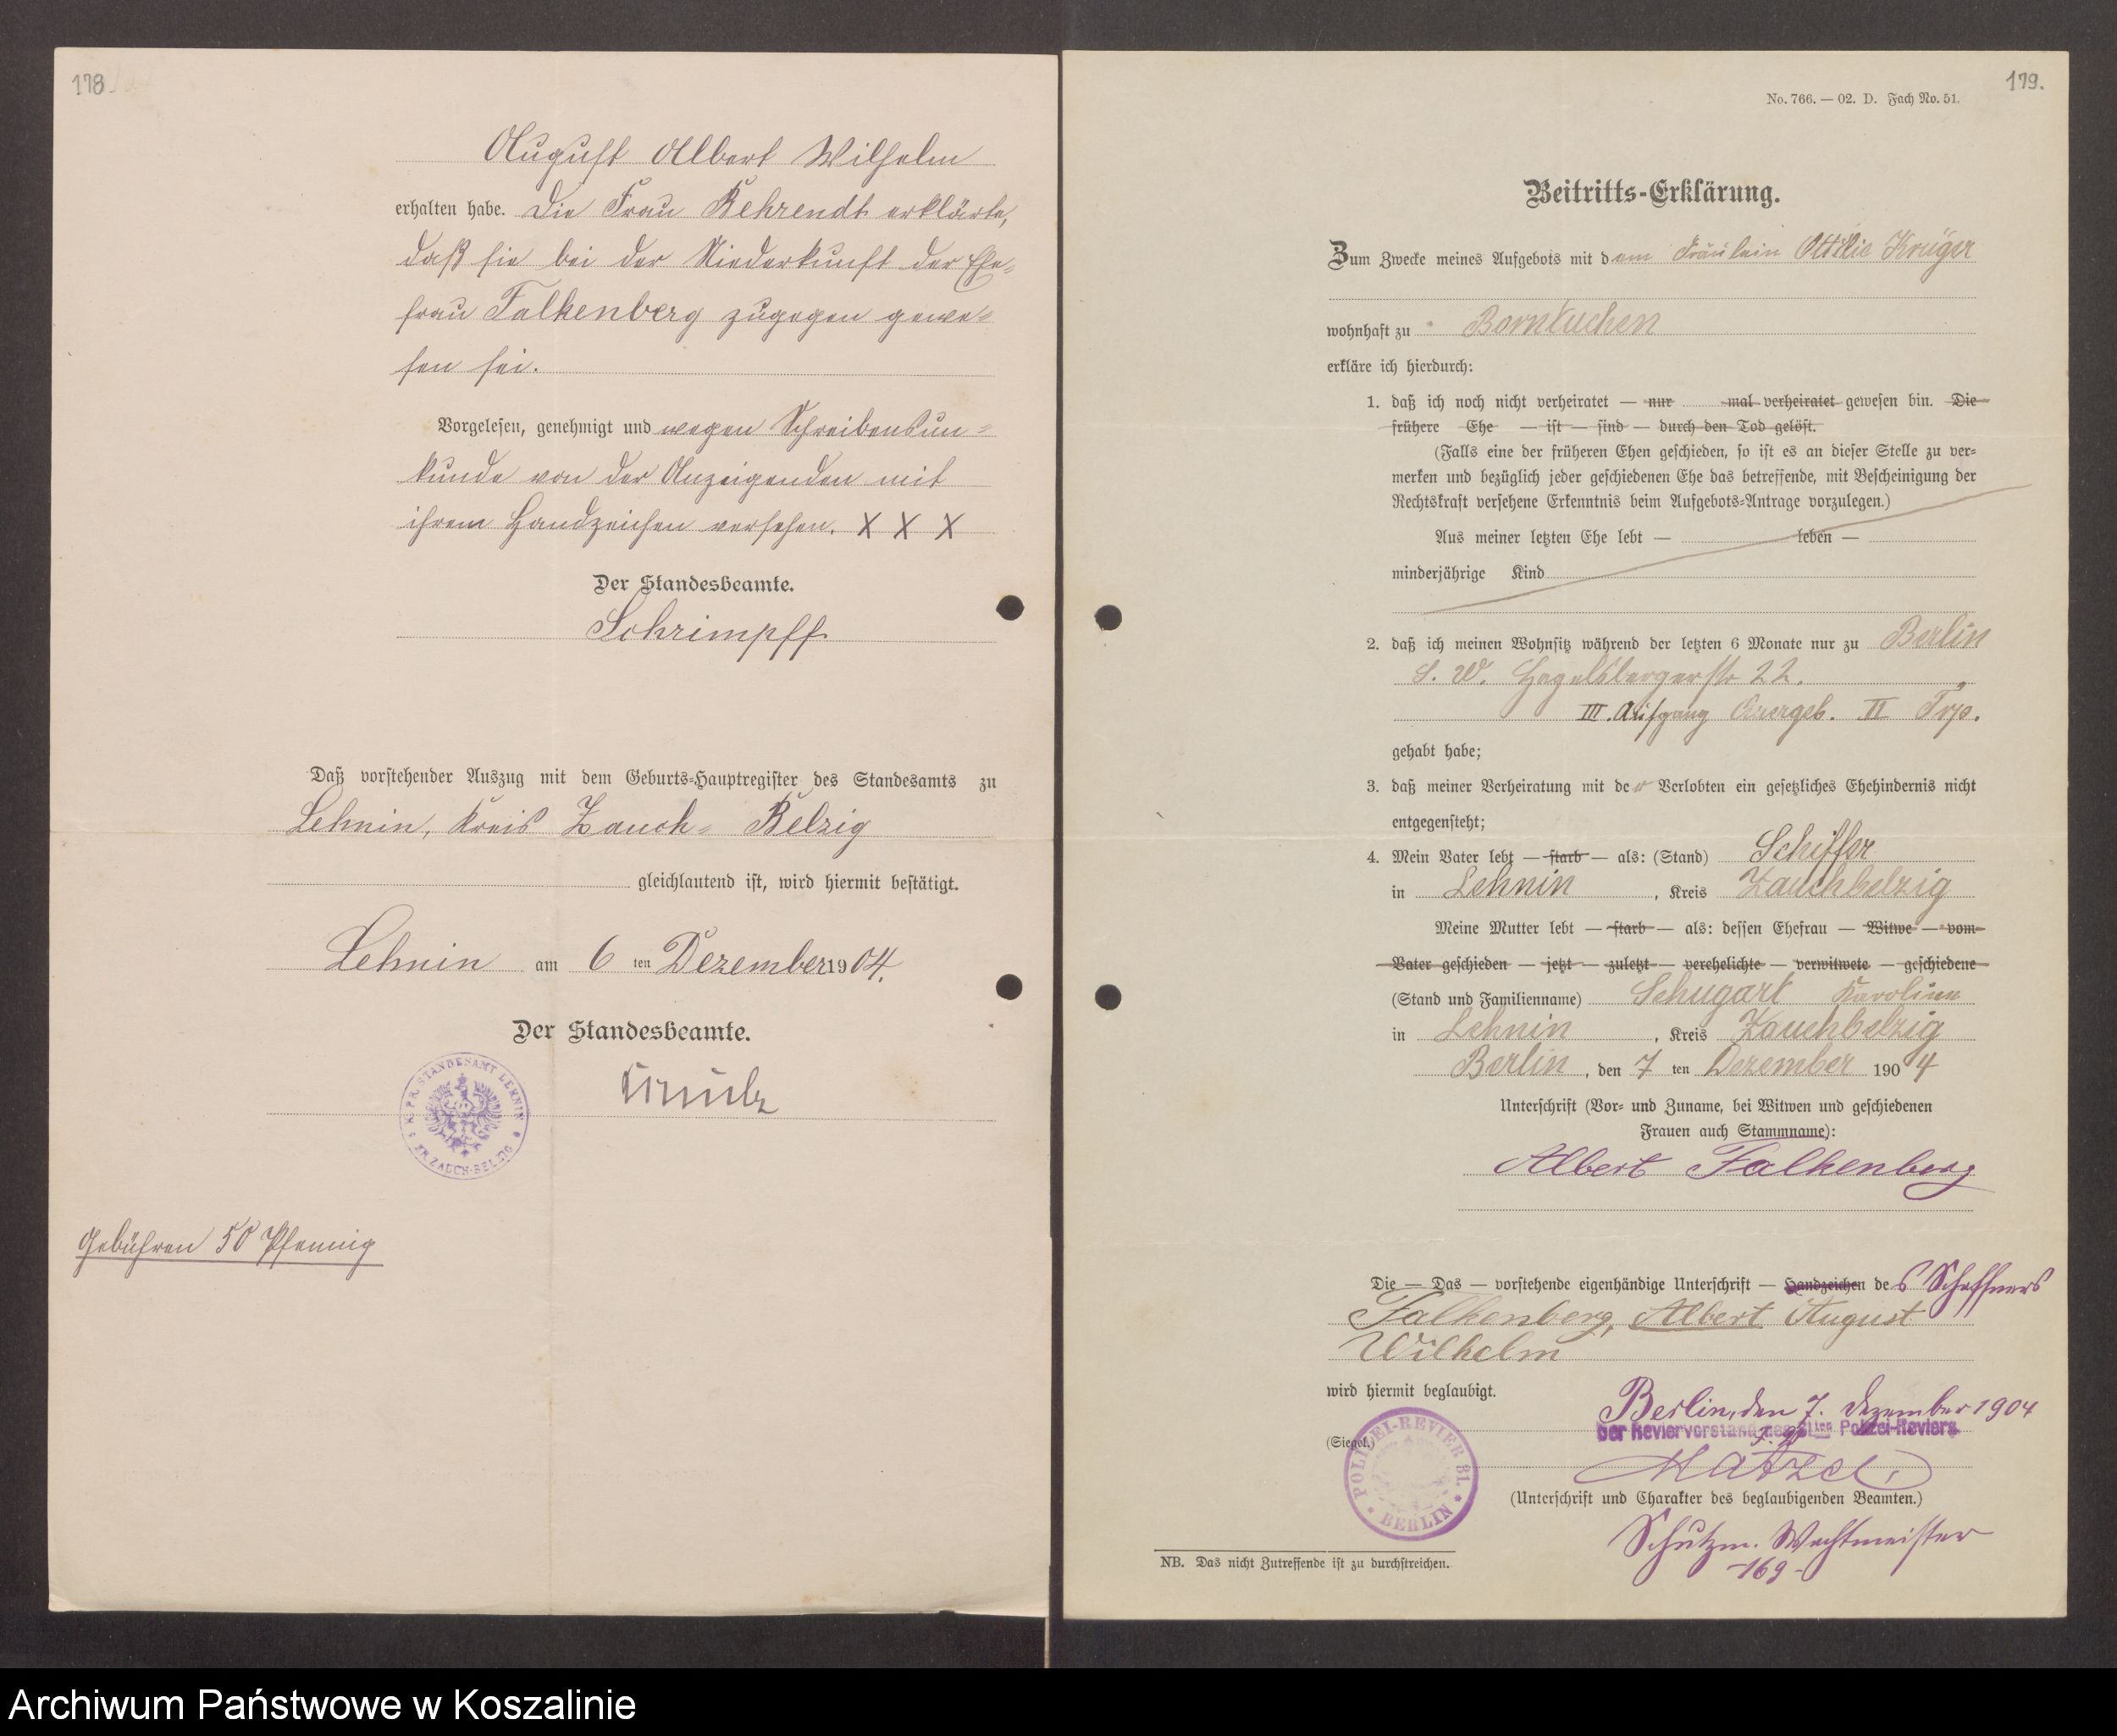 178.
August Albert Wilhelm
erhalten habe. Die Frau Behrendt erklärte,
daß sie bei der Niederkunft der Ehe=
frau Falkenberg zugegen gewe=
sen sei.
Vorgelesen, genehmigt und wegen Schreibensun=
kunde von der Anzeigenden mit
ihrem Handzeichen versehen. X X X
Der Standesbeamte.
Schrimpff
Daß vorstehender Auszug mit dem Geburts=Hauptregister des Standesamts zu
Lehnin, Kreis Zauch= Belzig
gleichlautend ist, wird hiermit bestätigt.
Lehnin am 6 ten Dezember 1904.
Der Standesbeamte.
K. PR. STANDESAMT LEHNIN
KR. ZAUCH-BELZIG
Gebühren 50 Pfennig
179.
No. 766. — 02. D. Fach No. 51.
Beitritts=Erklärung.
Zum Zwecke meines Aufgebots mit dem Fräulein Ottilie Krüger
wohnhaft zu Borntuchen
erkläre ich hierdurch:
1. daß ich noch nicht verheiratet — nur mal verheiratet gewesen bin. Die
frühere Ehe — ist — sind — durch den Tod gelöst.
(Falls eine der früheren Ehen geschieden, so ist es an dieser Stelle zu ver=
merken und bezüglich jeder geschiedenen Ehe das betreffende, mit Bescheinigung der
Rechtskraft versehene Erkenntnis beim Aufgebots=Antrage vorzulegen.)
Aus meiner letzten Ehe lebt — leben —
minderjährige Kind
2. daß ich meinen Wohnsitz während der letzten 6 Monate nur zu Berlin
S. W. Hagelsbergerstr 22.
III. Aufgang Quergeb. II Trp.
gehabt habe;
3. daß meiner Verheiratung mit der Verlobten ein gesetzliches Ehehindernis nicht
entgegensteht;
4. Mein Vater lebt — starb — als: (Stand) Schiffer
in Lehnin, Kreis Zauchbelzig
Meine Mutter lebt — starb — als: dessen Ehefrau — Witwe — vom
Vater geschieden — jetzt — zuletzt — verehelichte — verwitwete — geschiedene
(Stand und Familienname) Schugart Karoline
in Lehnin, Kreis Zauchbelzig
Berlin, den 7 ten Dezember 1904
Unterschrift (Vor= und Zuname, bei Witwen und geschiedenen
Frauen auch Stammname):
Albert Falkenberg
Die — Das — vorstehende eigenhändige Unterschrift — Handzeichen des Schaffners
Falkenberg, Albert August
Wilhelm
wird hiermit beglaubigt.
Berlin, den 7. Dezember 1904
Der Reviervorstand des 81ten Polizei-Reviers
(Siegel.)
POLIZEI-REVIER 81.
BERLIN
Matzel
(Unterschrift und Charakter des beglaubigenden Beamten.)
Schutzm. Wachtmeister
-169-
NB. Das nicht Zutreffende ist zu durchstreichen.
Archiwum Państwowe w Koszalinie